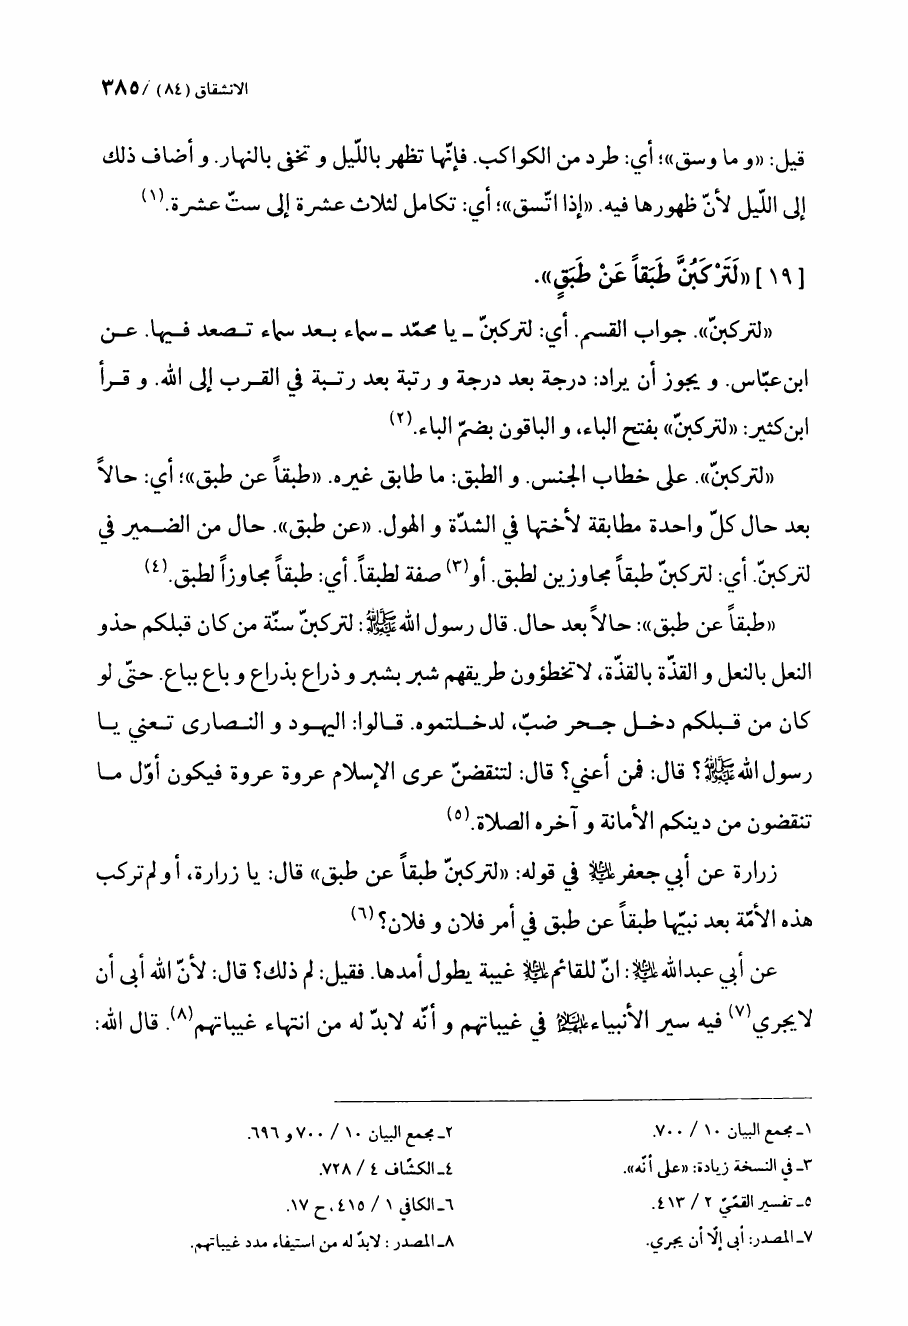 الانشقاق (٨٤) / ٣٨٥
قيل: «و ما وسق»؛ أي: طرد من الكواكب. فإنّها تظهر باللّيل و تخفى بالنهار. و أضاف ذلك
إلى اللّيل لأنّ ظهورها فيه. «إذا اتّسق»؛ أي: تكامل لثلاث عشرة إلى ستّ عشرة.(١)
[١٩] «لَتَرْكَبُنَّ طَبَقاً عَنْ طَبَقٍ».
«لتركبنّ». جواب القسم. أي: لتركبنّ ـ يا محمّد ـ سماء بعد سماء تصعد فيها. عن
ابن عبّاس. و يجوز أن يراد: درجة بعد درجة و رتبة بعد رتبة في القرب إلى الله. و قرأ
ابن كثير: «لتركبنّ» بفتح الباء، و الباقون بضمّ الباء.(٢)
«لتركبنّ». على خطاب الجنس. و الطبق: ما طابق غيره. «طبقاً عن طبق»؛ أي: حالاً
بعد حال كلّ واحدة مطابقة لأختها في الشدّة و الهول. «عن طبق». حال من الضمير في
لتركبنّ. أي: لتركبنّ طبقاً مجاوزين لطبق. أو(٣) صفة لطبقاً. أي: طبقاً مجاوزاً لطبق.(٤)
«طبقاً عن طبق»: حالاً بعد حال. قال رسول الله ﷺ: لتركبنّ سنّة من كان قبلكم حذو
النعل بالنعل و القذّة بالقذّة، لا تخطؤون طريقهم شبر بشبر و ذراع بذراع و باع بباع. حتّى لو
كان من قبلكم دخل جحر ضبّ، لدخلتموه. قالوا: اليهود و النصارى تعني يا
رسول الله ﷺ؟ قال: فمن أعني؟ قال: لتنقضنّ عرى الإسلام عروة عروة فيكون أوّل ما
تنقضون من دينكم الأمانة و آخره الصلاة.(٥)
زرارة عن أبي جعفر عليه السلام في قوله: «لتركبنّ طبقاً عن طبق» قال: يا زرارة، أو لم تركب
هذه الأمّة بعد نبيّها طبقاً عن طبق في أمر فلان و فلان؟(٦)
عن أبي عبدالله عليه السلام: انّ للقائم عليه السلام غيبة يطول أمدها. فقيل: لم ذلك؟ قال: لأنّ الله أبى أن
لا يجري(٧) فيه سير الأنبياء عليهم السلام في غيباتهم و أنّه لابدّ له من انتهاء غيباتهم(٨). قال الله:
١ـ مجمع البيان ١٠ / ٧٠٠.
٢ـ مجمع البيان ١٠ / ٧٠٠ و ٦٩٦.
٣ـ في النسخة زيادة: «على أنّه».
٤ـ الكشّاف ٤ / ٧٢٨.
٥ـ تفسير القمّيّ ٢ / ٤١٣.
٦ـ الكافي ١ / ٤١٥، ح ١٧.
٧ـ المصدر: أبى إلّا أن يجري.
٨ـ المصدر: لابدّ له من استيفاء مدد غيباتهم.